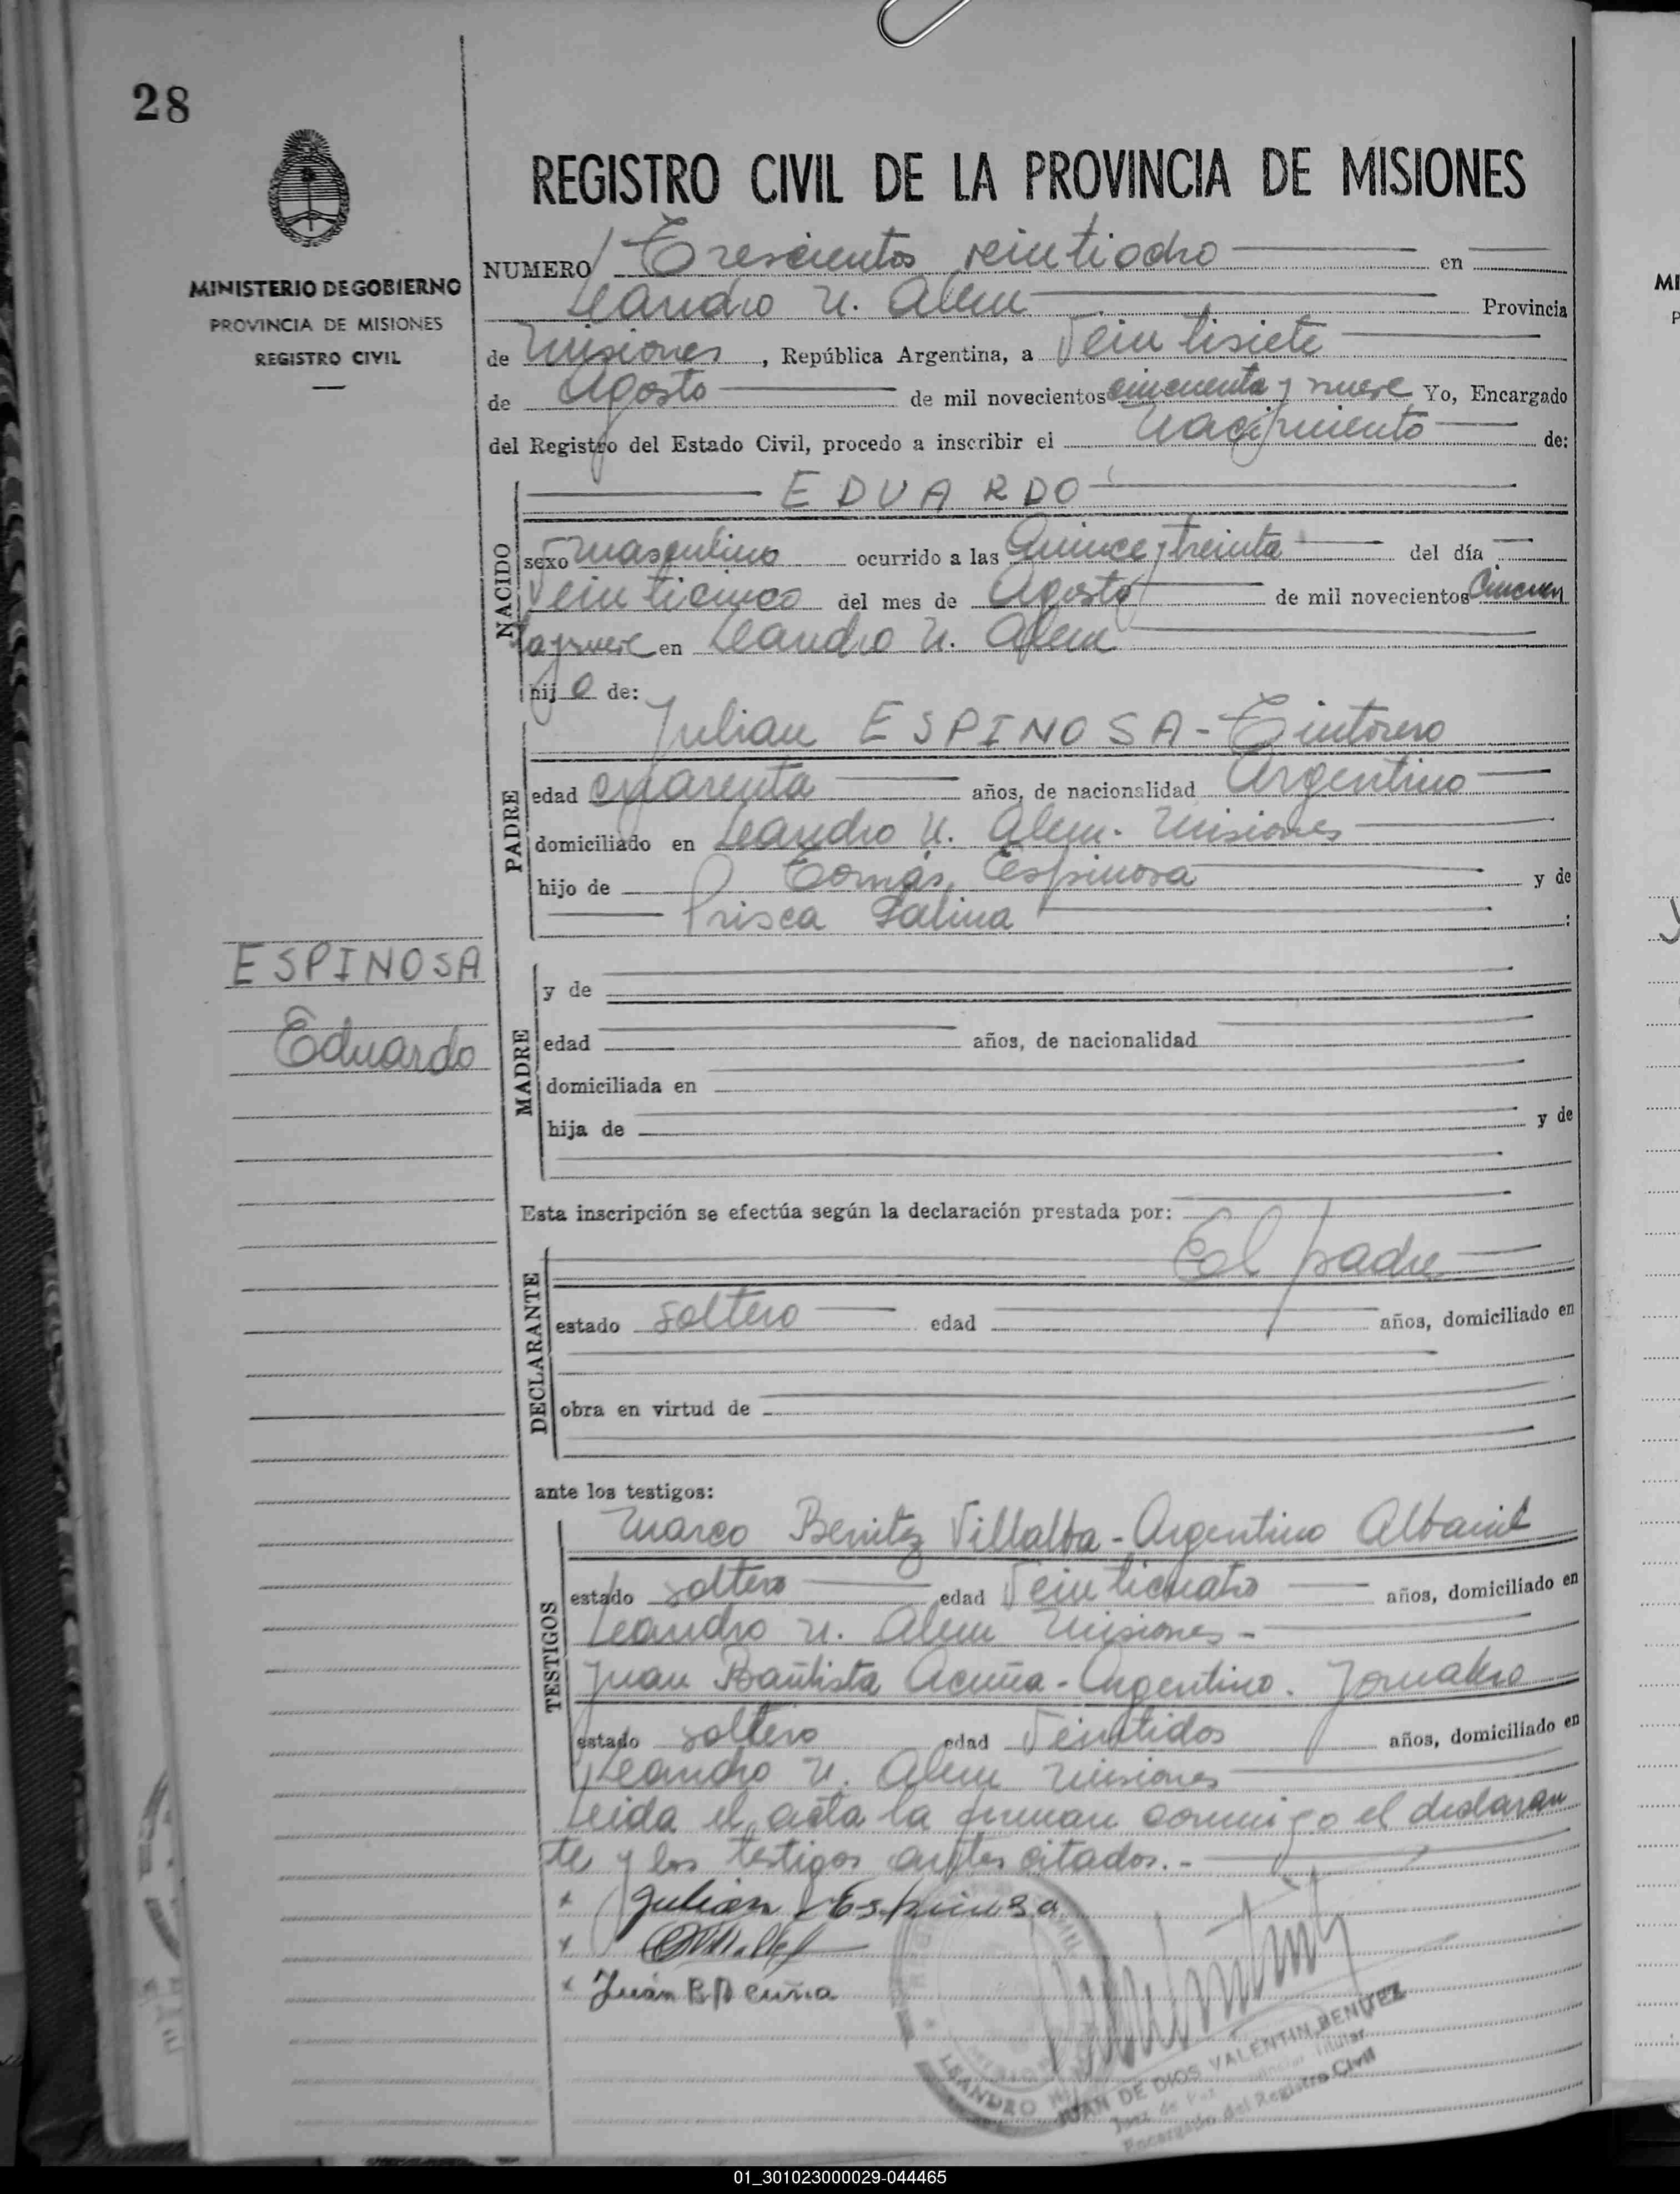 28
REGISTRO CIVIL DE LA PROVINCIA DE MISIONES
MINISTERIO DE GOBIERNO
PROVINCIA DE MISIONES
REGISTRO CIVIL
NUMERO Trescientos veintiocho en
Leandro N. Alem Provincia
de Misiones, República Argentina, a Veintisiete
de Agosto de mil novecientos cincuenta y nueve Yo, Encargado
del Registro del Estado Civil, procedo a inscribir el Nacimiento de:
NACIDO
EDUARDO
sexo masculino ocurrido a las Quince y treinta del día
Veinticinco del mes de Agosto de mil novecientos Cincuen
ta y nueve en Leandro N. Alem
hijo de:
PADRE
Julian ESPINOSA - Tintorero
edad cuarenta años, de nacionalidad Argentino
domiciliado en Leandro N. Alem - Misiones
hijo de Tomás Espinosa y de
Prisca Salina :
ESPINOSA
Eduardo
MADRE
y de
edad años, de nacionalidad
domiciliada en
hija de y de
Esta inscripción se efectúa según la declaración prestada por:
DECLARANTE
El padre
estado soltero edad años, domiciliado en
obra en virtud de
ante los testigos:
TESTIGOS
Marco Benitez Villalba - Argentino Albanil
estado soltero edad Veinticuatro años, domiciliado en
Leandro N. Alem Misiones -
Juan Bautista Acuña - Argentino. Jornalero
estado soltero edad Veintidos años, domiciliado en
Leandro N. Alem Misiones
Leida el acta la firman conmigo el declaran
te y los testigos antes citados. -
x Julian Espinosa
x
x Juán B Acuña
LEANDRO N.
JUAN DE DIOS VALENTIN BENITEZ
Juez de Paz Titular
Encargado del Registro Civil
01_301023000029-044465